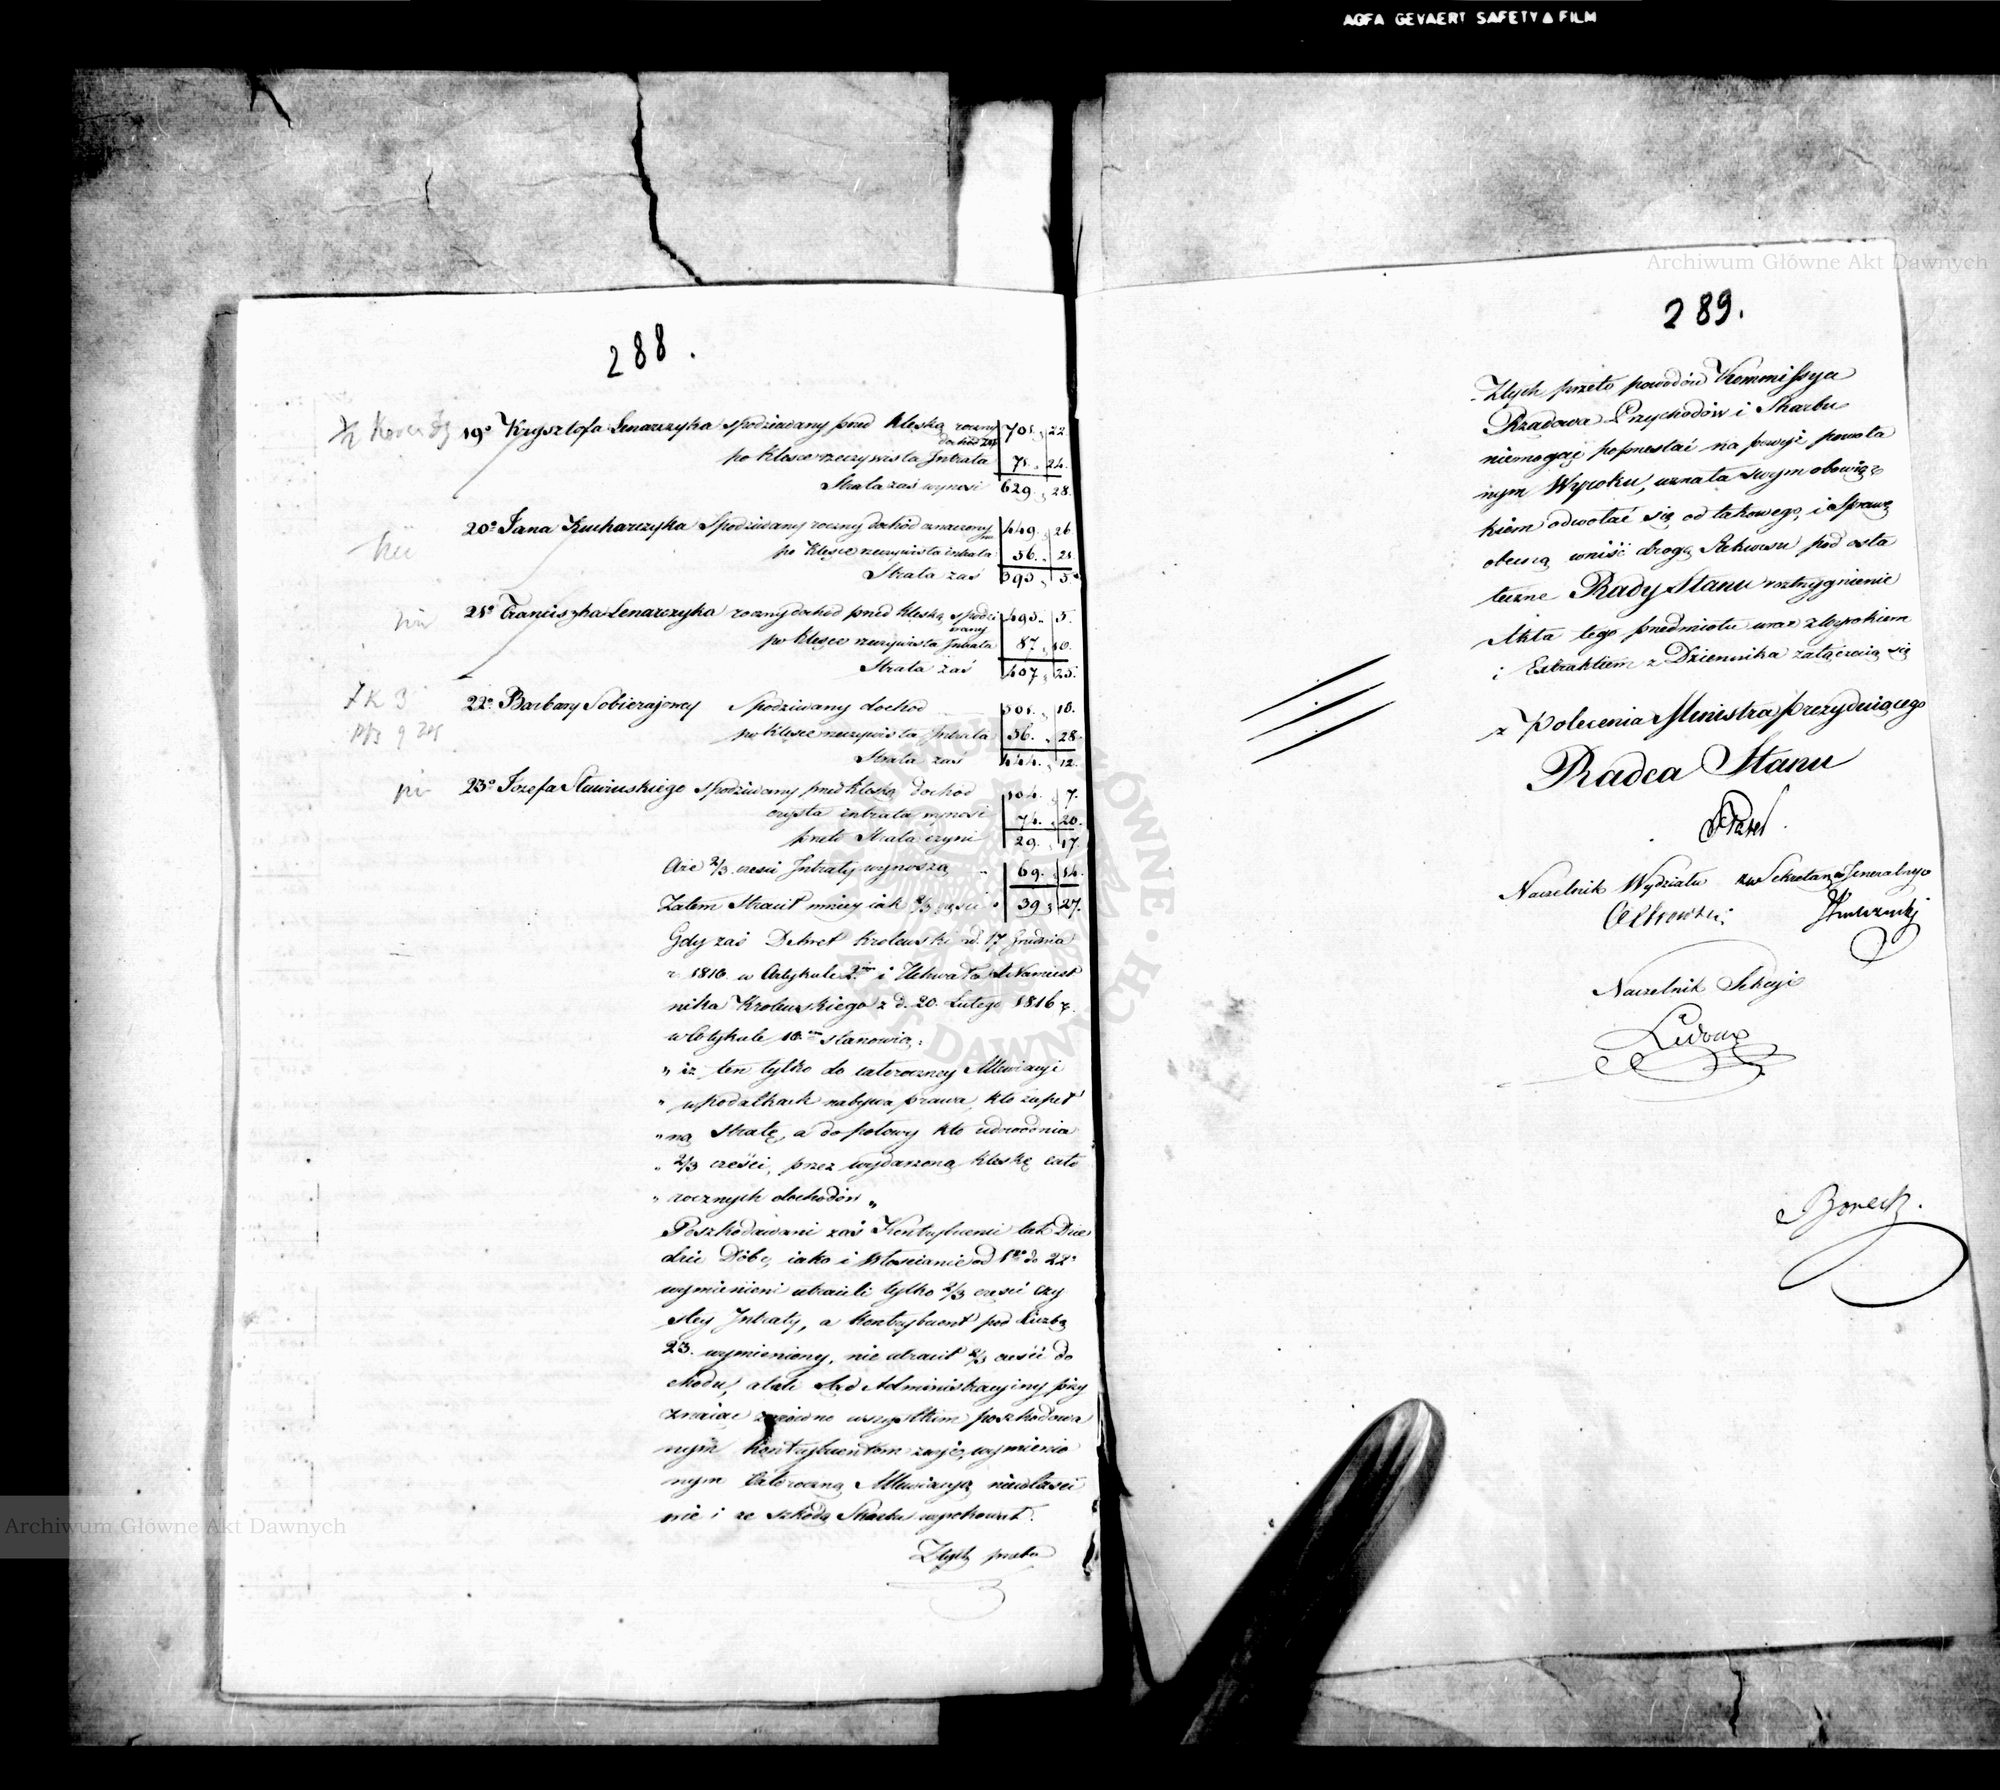 AGFA GEVAERT SAFETY FILM
Archiwum Główne Akt Dawnych
288.
19° Krysztofa Lenarczyka spodziewany przed klęską roczny dochód 701. 22
po klęsce rzeczywista Intrata 71. 24.
Strata zaś wynosi 629. 28.
20° Jana Kucharczyka Spodziewany roczny dochód oznaczony 449. 26
po klęsce rzeczywista intrata 56. 21
Strata zaś 393. 5
21° Franciszka Lenarczyka roczny dochód przed klęską spodziewany 495. 5.
po klęsce rzeczywista Intrata 87. 10.
Strata zaś 407. 25.
22° Barbary Sobierajowey Spodziwany dochod 501. 10.
po klęsce rzeczywista Intrata 56. 28
Strata zaś 444. 12.
23° Jozefa Stawinskiego spodziwany przed klęską dochód 104. 7.
czysta intrata wynosi 74. 20.
przeto Strata czyni 29. 17.
A że 2/3 części Intraty wynoszą 69. 14.
Zatem Stracił mniey iak 2/3 części 39. 27.
Gdy zaś Dekret Krolewski z d. 17 Grudnia
r. 1810 w Artykule 2im i Uchwała X. Namiest
nika Krolewskiego z d. 20. Lutego 1816 r.
w Artykule 10. stanowią:
„ iż ten tylko do całoroczney Allewiacyi
„ w podatkach nabywa prawa, kto zupeł
„ ną Stratę, a do połowy kto udowodnia
„ 2/3 części, przez wydarzoną klęskę cało
„ rocznych dochodów „
Poszkodowani zaś Kontrybuenci tak Dzie
dzic Dóbr, iako i Włościanie od 1go do 22°
wymienieni utracili tylko 2/3 części czy
stey Intraty, a Kontrybuent pod Liczbą
23. wymieniony, nie utracił 2/3 części do
chodu, a tak Sąd Administracyjny przy
znaiąc zarówno wszystkim poszkodowa
nym Kontrybuentom zwyż wymienio
nym Całoroczną Allewiacyą niewłaści
wie i ze szkodą Skarbu wyrokował.
Z tych przeto
289.
Z tych przeto powodów Kommissya
Rządowa Przychodów i Skarbu
niemogąc poprzestać na powyż powoła
nym Wyroku, uznała swym obowiąz
kiem odwołać się od takowego, i Sprawę
obecną wnieść drogą Rekursu pod osta
teczne Rady Stanu rozstrzygnienie
Akta tego przedmiotu wraz z Wyrokiem
i Extraktem z Dziennika załączaią się
z Polecenia Ministra Prezyduiącego
Radca Stanu
Naczelnik Wydziału zw Sekretarza Generalnego
Naczelnik Sekcyi
Archiwum Główne Akt Dawnych